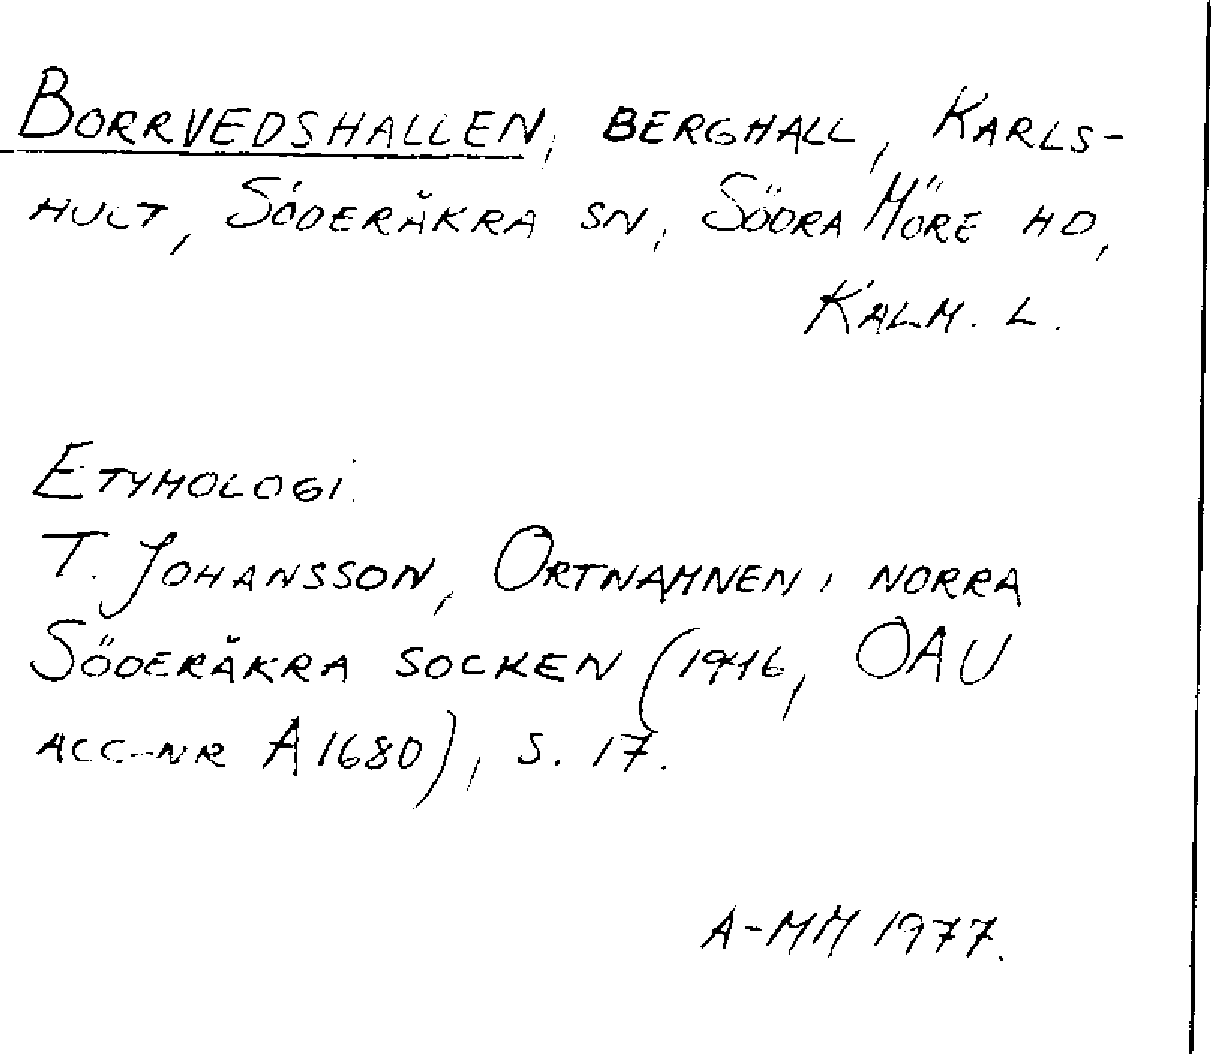 BORRVEDSHALLEN, BERGHALL, KARLS-
HULT, SÖDERÅKRA SN, SÖDRA MÖRE HD,
KALM. L.
ETYMOLOGI.
T. JOHANSSON, ORTNAMNEN I NORRA
SÖDERÅKRA SOCKEN (1946, OAU
ACC-NR A1680), S. 17.
A-MM 1977.